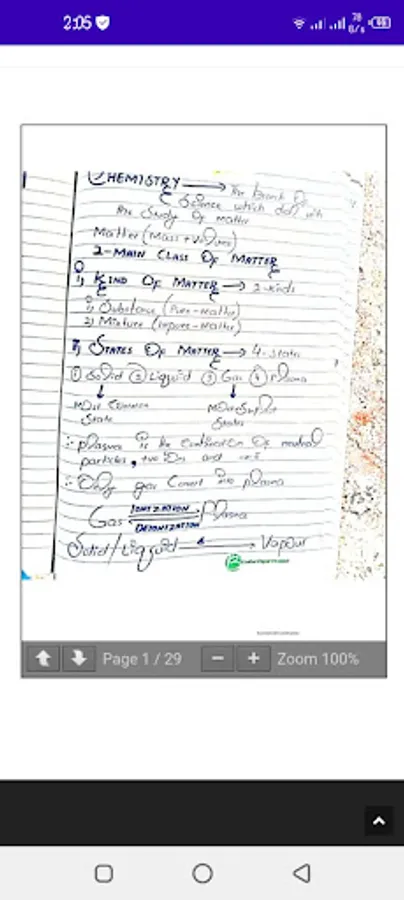 2:05
78
B/s
CHEMISTRY → The Branch Of
Science which deal with
the Study Of matter
Matter (Mass + Volume)
2-MAIN CLASS OF MATTER
i) KIND OF MATTER → 2-kinds
1) Substance (Pure-matter)
2) Mixture (Impure-matter)
ii) STATES OF MATTER → 4-state
① Solid ② Liquid ③ Gas ④ Plasma
Most Common
State
States
∴ plasma is the Of neutral
particles, +ve and
∴ Only gas Convert into plasma
Gas IONIZATION Plasma
DEIONIZATION
Solid/Liquid → Vapour
Page 1 / 29
Zoom 100%